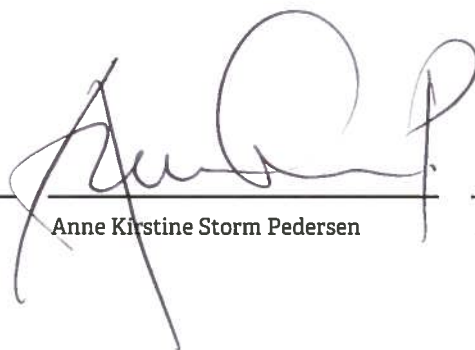 Anne Kirstine Storm Pedersen